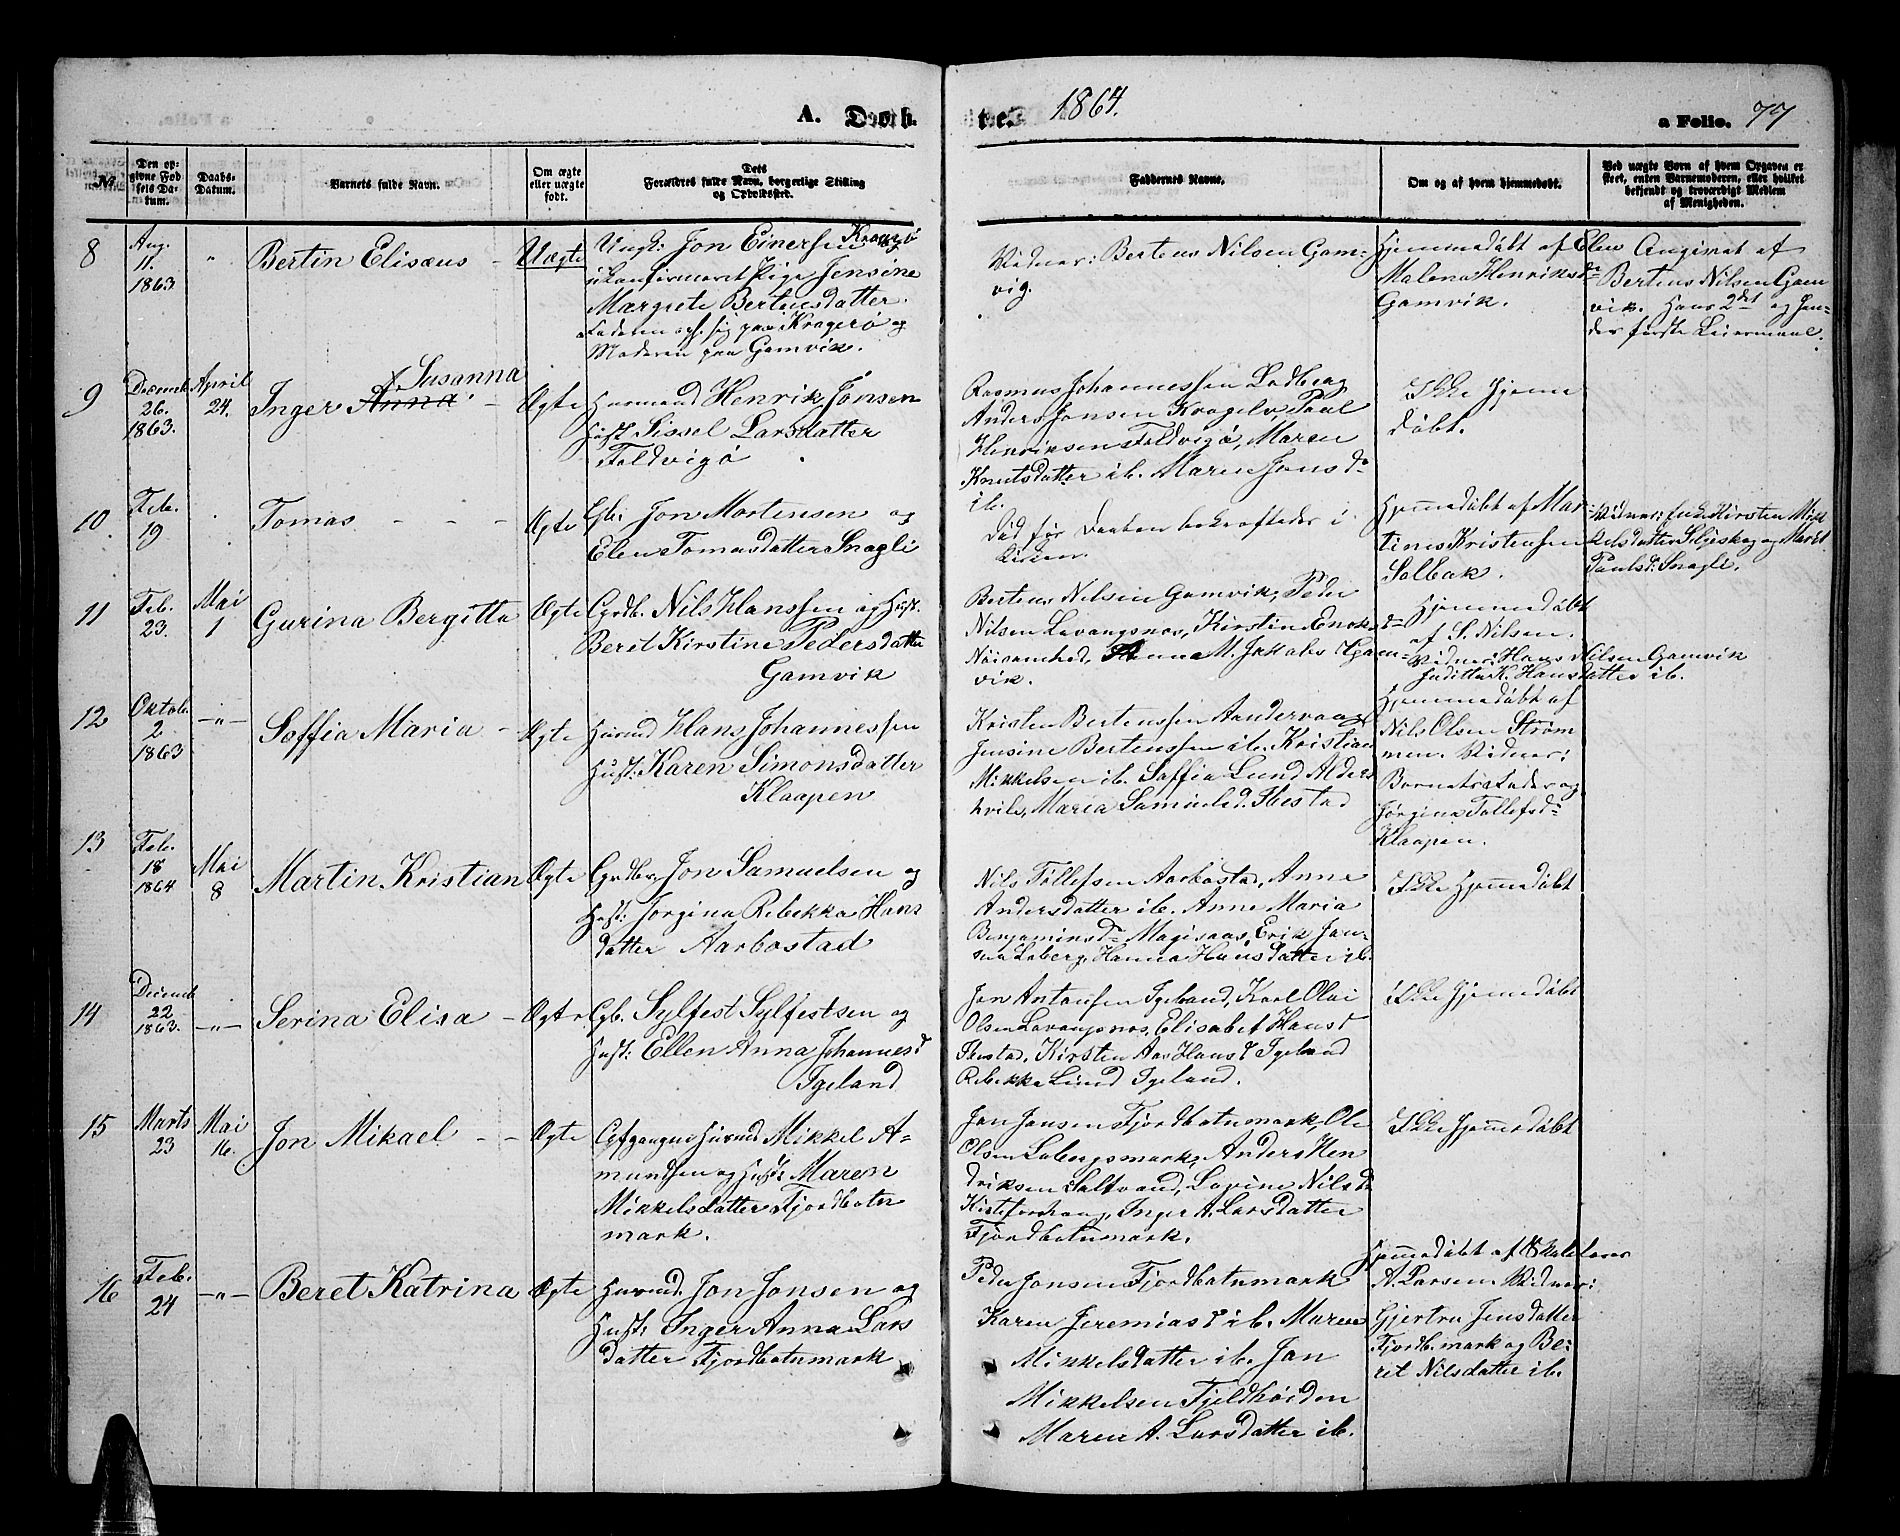 A. Døbte. 1864.
a Folio. 77
№
Den opgivne Fødsels Datum.
Daabs-Datum.
Barnets fulde Navn.
Om ægte eller uægte født.
Dets Forældres fulde Navn, borgerlige Stilling og Opholdssted.
Faddernes Navne.
Om og af hvem hjemmedøbt.
Ved uægte Børn af hvem Opgaven er skeet, enten Barnemoderen, eller hvilket bekjendt og troværdigt Medlem af Menigheden.
8
Aug. 11. 1863
"
Bertin Elisæus
Uægte
Ungk: Jon Einersen Kragerø
ukonfirmeret Pige Jensine
Margrete Bertensdatter.
Faderen oph. sig paa Kragerø og
Moderen paa Gamvik.
Vidner: Bertens Nilsen Gam-
vig.
Hjemmedøbt af Elen
Malena Henriksd.
Gamvik.
Angivet af
Bertens Nilsen Gam
vik. Hans 2det og hen-
des første Leiermaal.
9
Decemb. 26. 1863.
April 24.
Inger Anna Susanna
Ægte
Husmand Henrik Jonsen
Hust. Sissel Larsdatter
Foldvigø
Rasmus Johannessen Lodberg
Anders Jonsen Kragelv, Paul
Henriksen Foldvigø, Maren
Knutsdatter ib. Maren Jonsd.
ib.
Ikke Hjemme
døbt.
10
Feb. 19
Tomas
Ægte
Gbr. Jon Mortensen og
Elen Tomasdatter Snagli
Død før Daaben bekræftedes i
Kirken.
Hjemmedøbt af Mar
tines Kristensen
Solbak.
Vidner: Enke Kirsten Mik
kelsdatter Seljeskog og Maret
Paulsd: Snagli.
11
Feb. 23.
Mai 1
Gurina Bergitta
Ægte
Grdb. Nils Hanssen og Hust.
Beret Kirstine Pedersdatter
Gamvik
Bertens Nilsen Gamvik, Peder
Nilsen Lavangsnes, Kirstin Enoks
Nøisomhed, Anne M. Jakobs Gam-
vik.
Hjemmedøbt
af S. Nilsen.
Vidner: Hans Nilsen Gamvik
Judithe K. Hansdatter ib.
12
Oktob. 2 1863
— " —
Soffia Maria
Ægte
Husmd Hans Johannessen
Hust: Karen Simonsdatter
Klaapen
Kristen Bertenssen Aandervaag
Jensine Bertenssen ib. Kristian
Mikkelsen ib. Soffia Lund Alders
hvile, Maria Samuelsd. Ibestad
Hjemmedøbt af
Nils Olsen Strøm
men. Vidner:
Barnets Fader og
Jørgina Tollefsd.
Klaapen.
13
Feb. 18 1864
Mai 8
Martin Kristian
Ægte
Grdbr. Jon Samuelsen og
Hust: Jorgina Rebekka Hans
datter Aarbostad
Nils Tollefsen Aarbostad, Anne
Andersdatter ib. Anne Maria
Benjaminsd. Magisaas, Erik Jon-
sen Loberg, Hanna Hansdatter ib.
Ikke Hjemmedøbt
14
Decemb 22 1863.
— " —
Serina Elisa
Ægte
Gb. Sylfest Sylfestsen og
Hust: Ellen Anna Johannesd
Igeland
Jon Antonsen Igeland, Karl Olai
Olsen Lavangsnes, Elisabet Hansd
Ibestad, Kirsten Aas Hansd Igeland
Rebekka Lund Igeland.
Ikke Hjemmedøbt
15
Marts 23
Mai 16.
Jon Mikael
Ægte
Opgangne Husmd Mikkel A-
mundsen og Hust: Maren
Mikkelsdatter Fjordbotn
mark.
Jon Jonsen Fjordbotnmark, Ole
Olsen Lobergsmark, Anders Hen
driksen Saltvand, Lovine Nilsd
Kisteforhaug, Inger A. Larsdatter
Fjordbotnmark.
Ikke Hjemmedøbt
16
Feb. 24
— " —
Beret Katrina
Ægte
Husmd. Jon Jonsen og
Hust: Inger Anna Lars
datter Fjordbotnmark
Peder Jonsen Fjordbotnmark
Karen Jeremiasd ib. Maren
Mikkelsdatter ib. Jon
Mikkelsen Fjeldhøiden
Maren A. Larsdatter ib.
Hjemmedøbt af Skolelærer
A. Larsen Vidner:
Gjertru Jensdatter
Fjordb.mark og Be-
rit Nilsdatter ib.